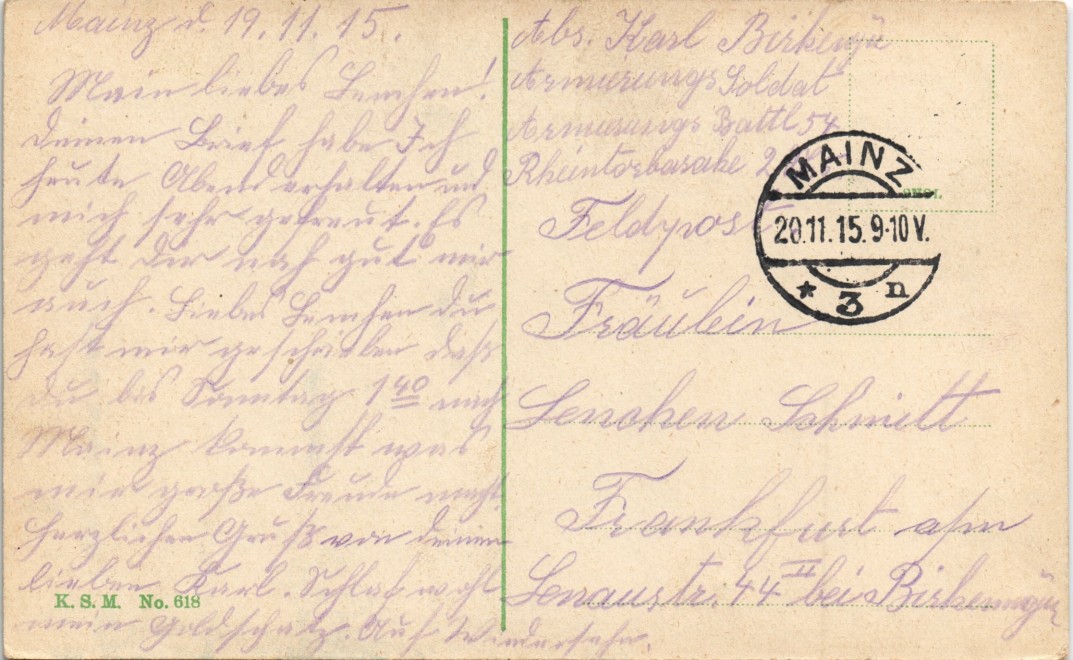 Mainz d. 19.11.15.
Mein liebes Lenchen!
Deinen Brief habe Ich
heute Abend erhalten und
mich sehr gefreut. Es
geht dir noch gut mir
auch. Liebes Lenchen du
hast mir geschrieben daß
du bis Sonntag 1 40 nach
Mainz kommst was
mir große Freude macht
Herzlichen Gruß von deinem
lieben Karl. Schlaf wohl
mein Goldschatz. Auf Wiedersehn.
K. S. M. No. 618
Abs. Karl
Armierungs Soldat
Armierungs Battl 54
2
Feldpost
MAINZ
20.11.15. 9-10 V.
* 3 n
Fräulein
Lenchen Schmitt
Frankfurt a/m
Lenaustr. 44 II bei